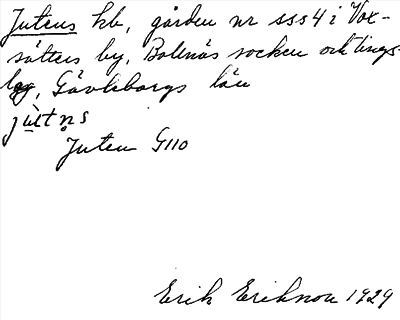 Jutens hb, gården nr sss4 i Vox-
sätters by, Bollnäs socken och tings-
lag, Gävleborgs län
Juten G110
Erik Eriknon 1929